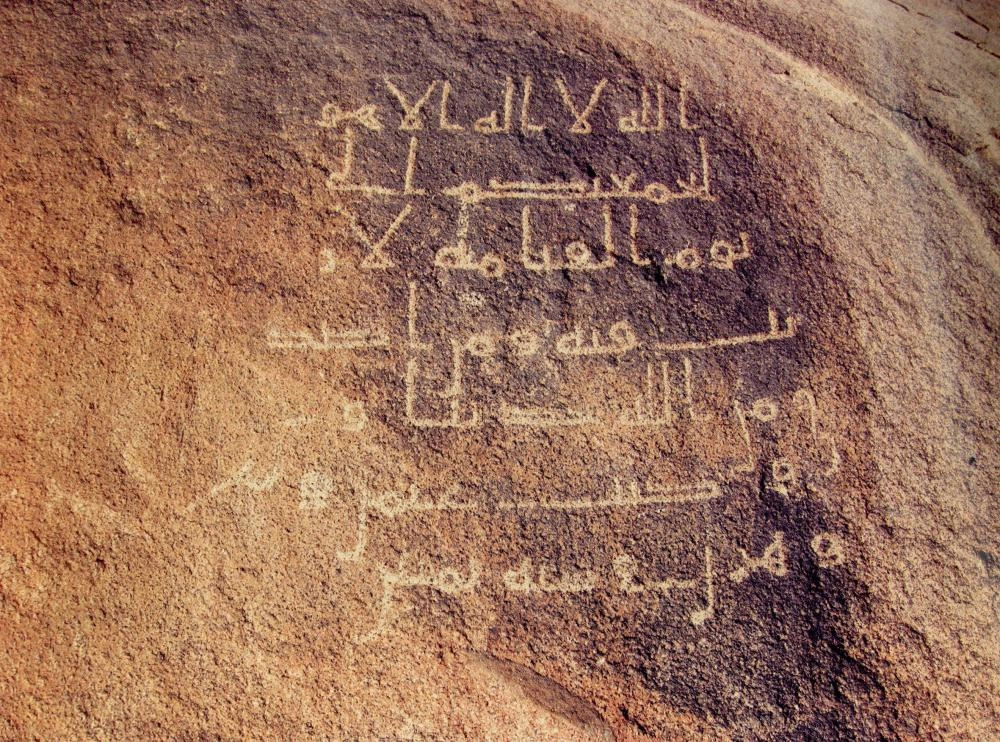 الله لا اله الا هو
ليجمعنكم الى
يوم القيامه لا ر
يب فيه ومن اصد
ق من الله حديثا و
كتب عثمن بن
وهرن في سنه ثمنين